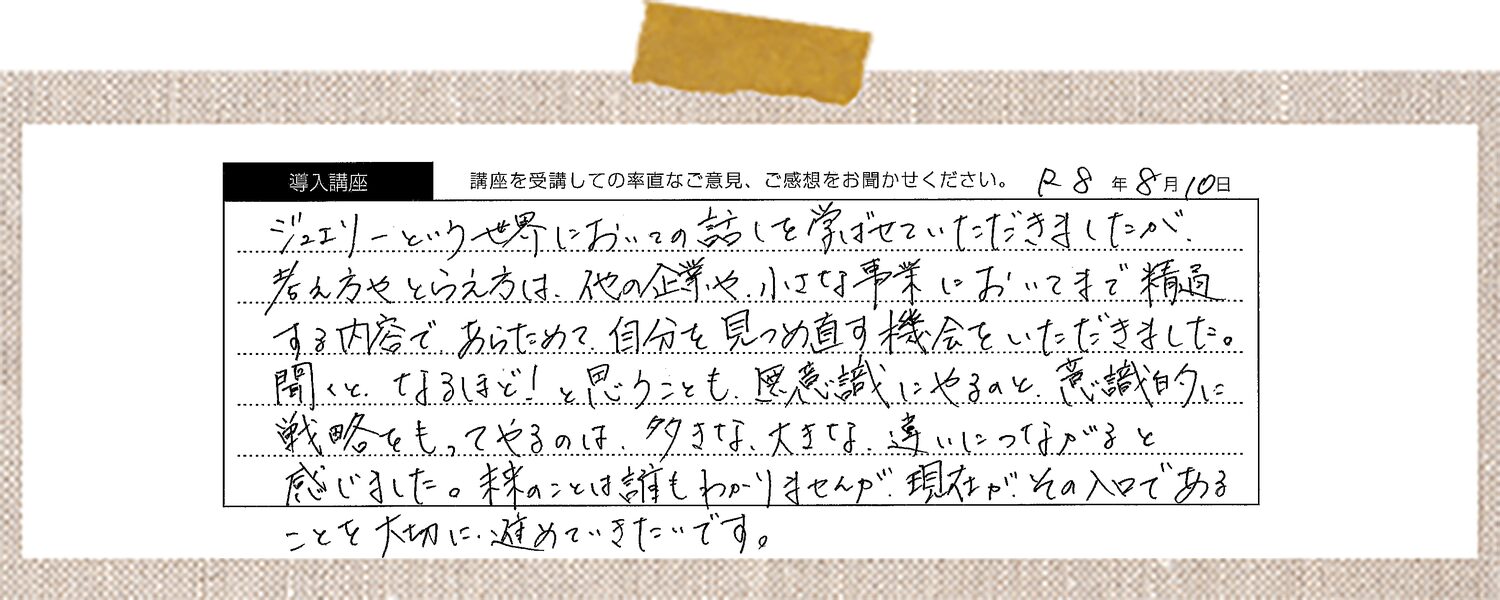 導入講座 講座を受講しての率直なご意見、ご感想をお聞かせください。 R8年8月10日
ジュエリーという世界においての話しを学ばせていただきましたが、
考え方やとらえ方は、他の企業や、小さな事業においてまで精通
する内容で、あらためて、自分を見つめ直す機会をいただきました。
聞くと、なるほど!と思うことも、無意識にやるのと、意識的に
戦略をもってやるのは、多きな、大きな、違いにつながると
感じました。未来のことは誰もわかりませんが、現在が、その入口である
ことを大切に、進めていきたいです。